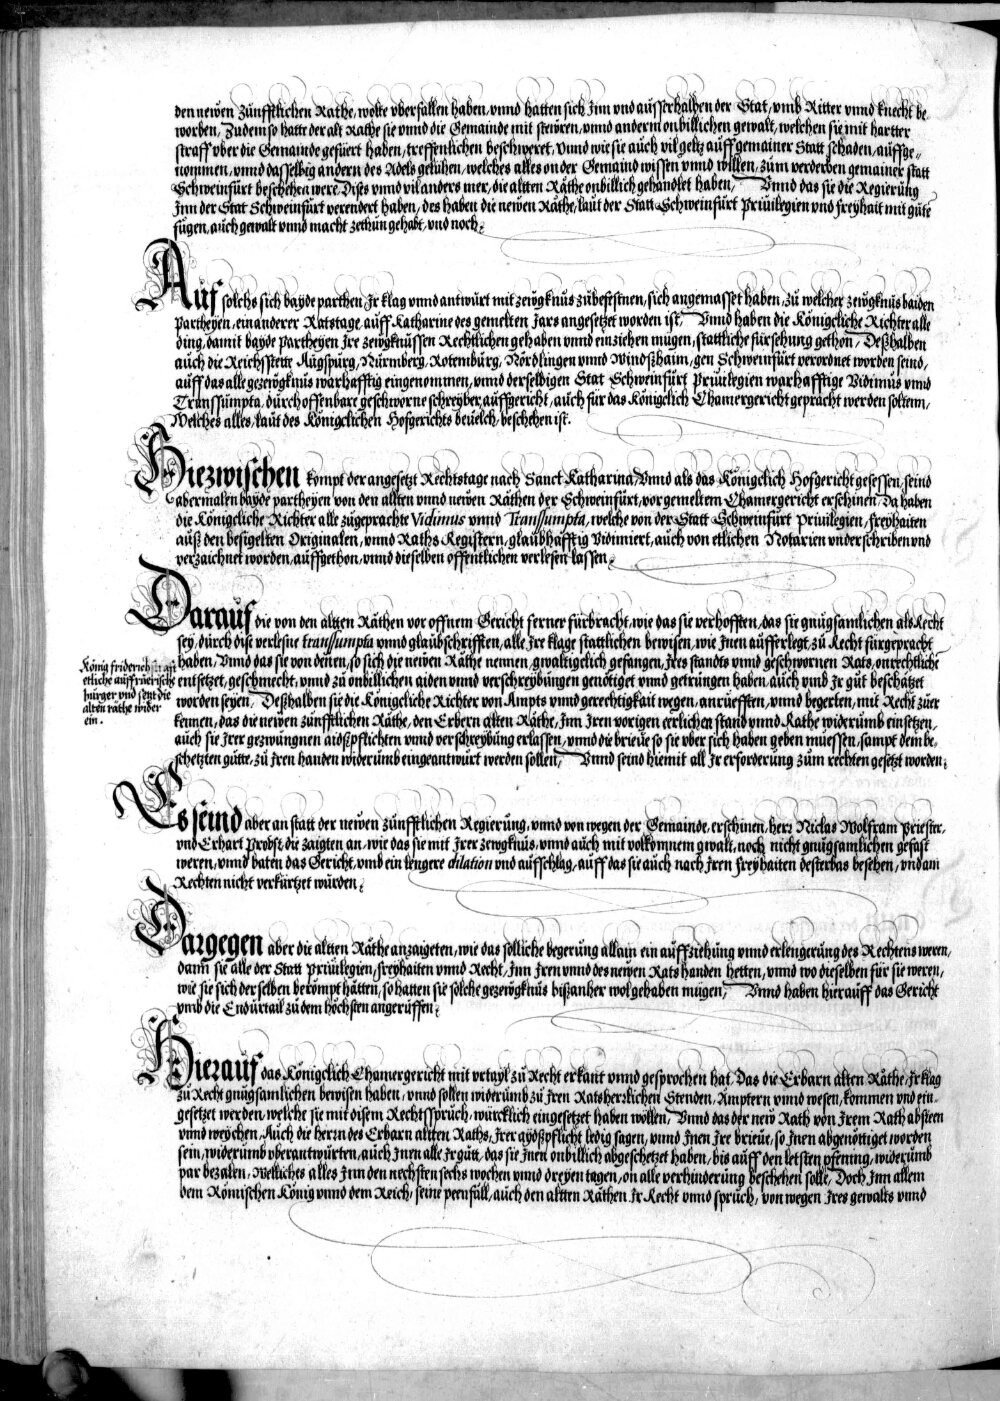 den newen Zünfftlichen Rathe, wolte vberfallen haben, vnnd hatten sich Jnn vnd ausserhalben der Stat, vmb Ritter vnnd knecht be
worben, Zudem so hatte der alt Rathe sie vnnd die Gemainde mit stewren, vnnd anderm onbillichen gewalt, welchen sie mit hartter
straff vber die Gemainde gefüert haben, treffentlichen beschweret, Vnnd wie sie auch vil geltz auff gemainer Statt schaden, auffge-
nommen, vnnd dasselbig andern des Adels gelühen, welches alles on der Gemaind wissen vnnd willen, zum verderben gemainer statt
Schweinfürt beschehen were, Dises vnnd vil anders mer, die altten Räthe onbillich gehandlet haben, Vnnd das sie die Regierung
Jnn der Stat Schweinfürt verendert haben, des haben die newen Räthe, laut der Statt Schweinfürt Priuilegien vnd freyhait mit güte
fügen, auch gewalt vnnd macht zethün gehabt, vnd noch.
Auf solchs sich bayde parthen Jr klag vnnd antwürt mit zewgknüs zübefestnen, sich angemasset haben, zu welcher zewgknüs baiden
Partheyen, ein anderer Ratstage auff Katharine des gemelten Jars angesetzet worden ist, Vnnd haben die Königcliche Richter alle
ding, damit bayde Partheyen Jre zewgknüssen Rechtlichen gehaben vnnd einziehen mügen, stattliche fürsehung gethon, Deßhalben
auch die Reichsstette Augspurg, Nürmberg, Rotemburg, Nördlingen vnnd Windßhaim, gen Schweinfürt verordnet worden seind,
auff das alle gezewgknüs warhafftig eingenommen, vnnd derselbigen Stat Schweinfürt Priuilegien warhafftige Vidimus vnnd
Transsumpta, durch offenbare geschworne schreyber, auffgericht, auch für das Königclich Chamergericht gepracht werden soltenn,
Welches alles, laut des Königclichen Hofgerichts beuelch, beschehen ist.
Hiezwischen kompt der angesetzt Rechtstage nach Sanct Katharina, Vnnd als das Königclich Hofgericht gesessen, seind
abermalen bayde partheyen von den altten vnnd newen Räthen der Schweinfürt, vor gemeltem Chamergericht erschinen, Da haben
die Königcliche Richter alle zügeprachte Vidimus vnnd Transsumpta, welche von der Statt Schweinfürt Priuilegien, freyhaiten
auß den besigelten Originalen, vnnd Raths Registern, glaubhafftig Vidimiert, auch von etlichen Notarien vnderschriben vnd
verzaichnet worden, auffgethon, vnnd dieselben offentlichen verlesen lassen.
Darauf die von den altten Räthen vor offnem Gericht ferner fürbracht, wie das sie verhofften, das sie gnügsamlichen als Recht
sey, durch dise verlesne transsumpta vnnd glaubschrifften, alle Jre klage stattlichen bewisen, wie Jnen aufferlegt, zu Recht fürgepracht
haben, Vnnd das sie von denen, so sich die newen Räthe nennen, gwaltigclich gefangen, Jres standts vnnd geschwornen Rats, onrechtliche
entsetzet, geschmecht, vnnd zu onbillichen aiden vnnd verschreybüngen genötiget vnnd getrüngen haben, auch vmb Jr güt beschätzet
worden seyen, Deßhalben sie die Königcliche Richter von Ampts vnnd gerechtigkait wegen, anrüefften, vnnd begerten, mit Recht züer
kennen, das die newen zünfftlichen Räthe, den Erbern alten Räthe, Jnn Jren vorigen eerlichen stand vnnd Rathe widerumb einsetzen,
auch sie Jrer gezwüngnen aidßpflichten vnnd verschreybung erlassen, vnnd die brieue so sie vber sich haben geben müessen, sampt dem be-
schetzten gütte, zu Jren handen widerumb eingeantwürt werden sollen, Vnnd seind hiemit all Jr erforderüng zum rechten gesetzt worden.
König friderich strafft
etliche auffrüerische
bürger vnd setzt die
alten räthe wider
ein.
Es seind aber an statt der newen zünfftlichen Regierüng, vnnd von wegen der Gemainde, erschinen, herr Niclas Wolfram Priester,
vnd Erhart Probst, die zaigten an, wie das sie mit Jrer zewgknüs, vnnd auch mit volkomnem gwalt, noch nicht gnügsamlichen gefast
weren, vnnd baten das Gericht, vmb ein lengere dilation vnd aufschlag, auff das sie auch nach Jren freyhaiten desterbas besehen, vnd am
Rechten nicht verkürtzet würden.
Dargegen aber die altten Räthe anzaigeten, wie das solliche begerüng allain ein auffziehüng vnnd erlengerüng des Rechtens weren,
dann sie alle der Statt Priuilegien, freyhaiten vnnd Recht, Jnn Jren vnnd des newen Rats handen hetten, vnnd wo dieselben für sie weren,
wie sie sich derselben berömpt hätten, so hatten sie solche gezewgknüs bißanher wol gehaben mügen, Vnnd haben hierauff das Gericht
vmb die Endürtail zu dem höchsten angerüffen.
Hierauf das Königclich Chamergericht mit vrtayl zu Recht erkant vnnd gesprochen hat, Das die Erbarn alten Räthe, Jr klag
zu Recht gnügsamlichen bewisen haben, vnnd sollen widerumb zu Jren Ratsherrlichen Stenden, Amptern vnnd wesen, kommen vnd ein-
gesetzet werden, welche sie mit disem Rechtsspruch, würcklich eingesetzet haben wöllen, Vnnd das der new Rath von Jrem Rath absteen
vnnd weychen, Auch die herrn des Erbarn altten Raths, Jrer aydßpflicht ledig sagen, vnnd Jnen Jre brieue, so Jnen abgenöttiget worden
sein, widerumb vberantwürten, auch Jnen alle Jr gütt, das sie Jnen onbillich abgeschetzet haben, bis auff den letsten pfening, widerumb
par bezalen, Welliches alles Jnn den nechsten sechs wochen vnnd dreyen tagen, on alle verhinderüng beschehen solle, Doch Jnn allem
dem Römischen König vnnd dem Reich, seine peenfäll, auch den altten Räthen Jr Recht vnnd spruch, von wegen Jres gewalts vnnd